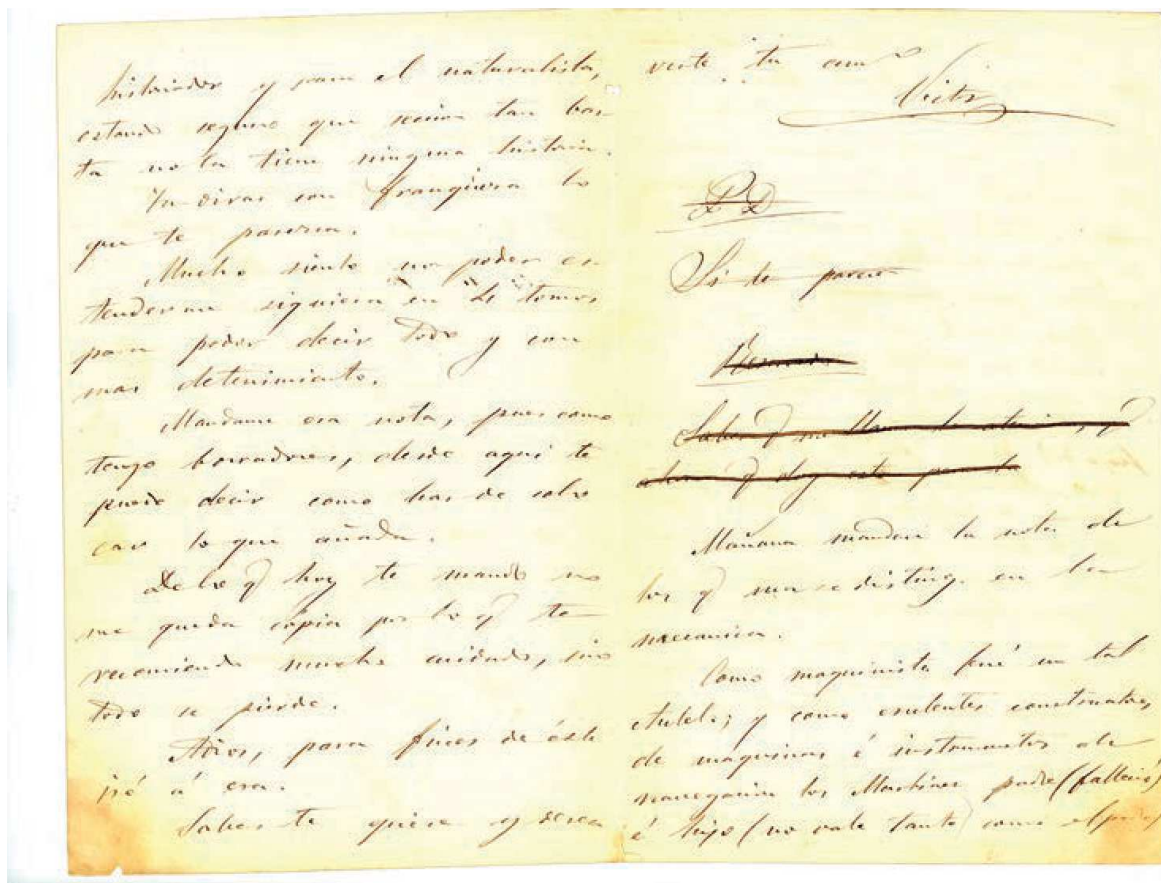 historiador y para el naturalista,
estando seguro que seccion tan bas-
ta no la tiene ninguna historia.
Tu diras con franqueza lo
que te parezca.
Mucho siento no poder es-
tenderme siquiera en de tomos
para poder decir todo y con
mas detenimiento.
Mandame esa nota, pues como
tengo borradores, desde aqui te
puedo decir como has de colo-
car lo que añada.
De lo q hoy te mando no
me queda cópia por lo q te
recomiendo mucho cuidado, sino
todo se pierde.
Adios, para fines de éste
iré á esa.
Sabes te quiere y desea
verte tu
PD
Si te parece
Sabes q me llaman la y
q doy este
Mañana mandaré la nota de
los q mas se disting. en la
mecanica.
Como maquinista fué un tal
y como exelentes constructores
de maquinas é instrumetos de
navegacion los Martinez padre (falleció)
é hijo (no vale tanto como el padre)